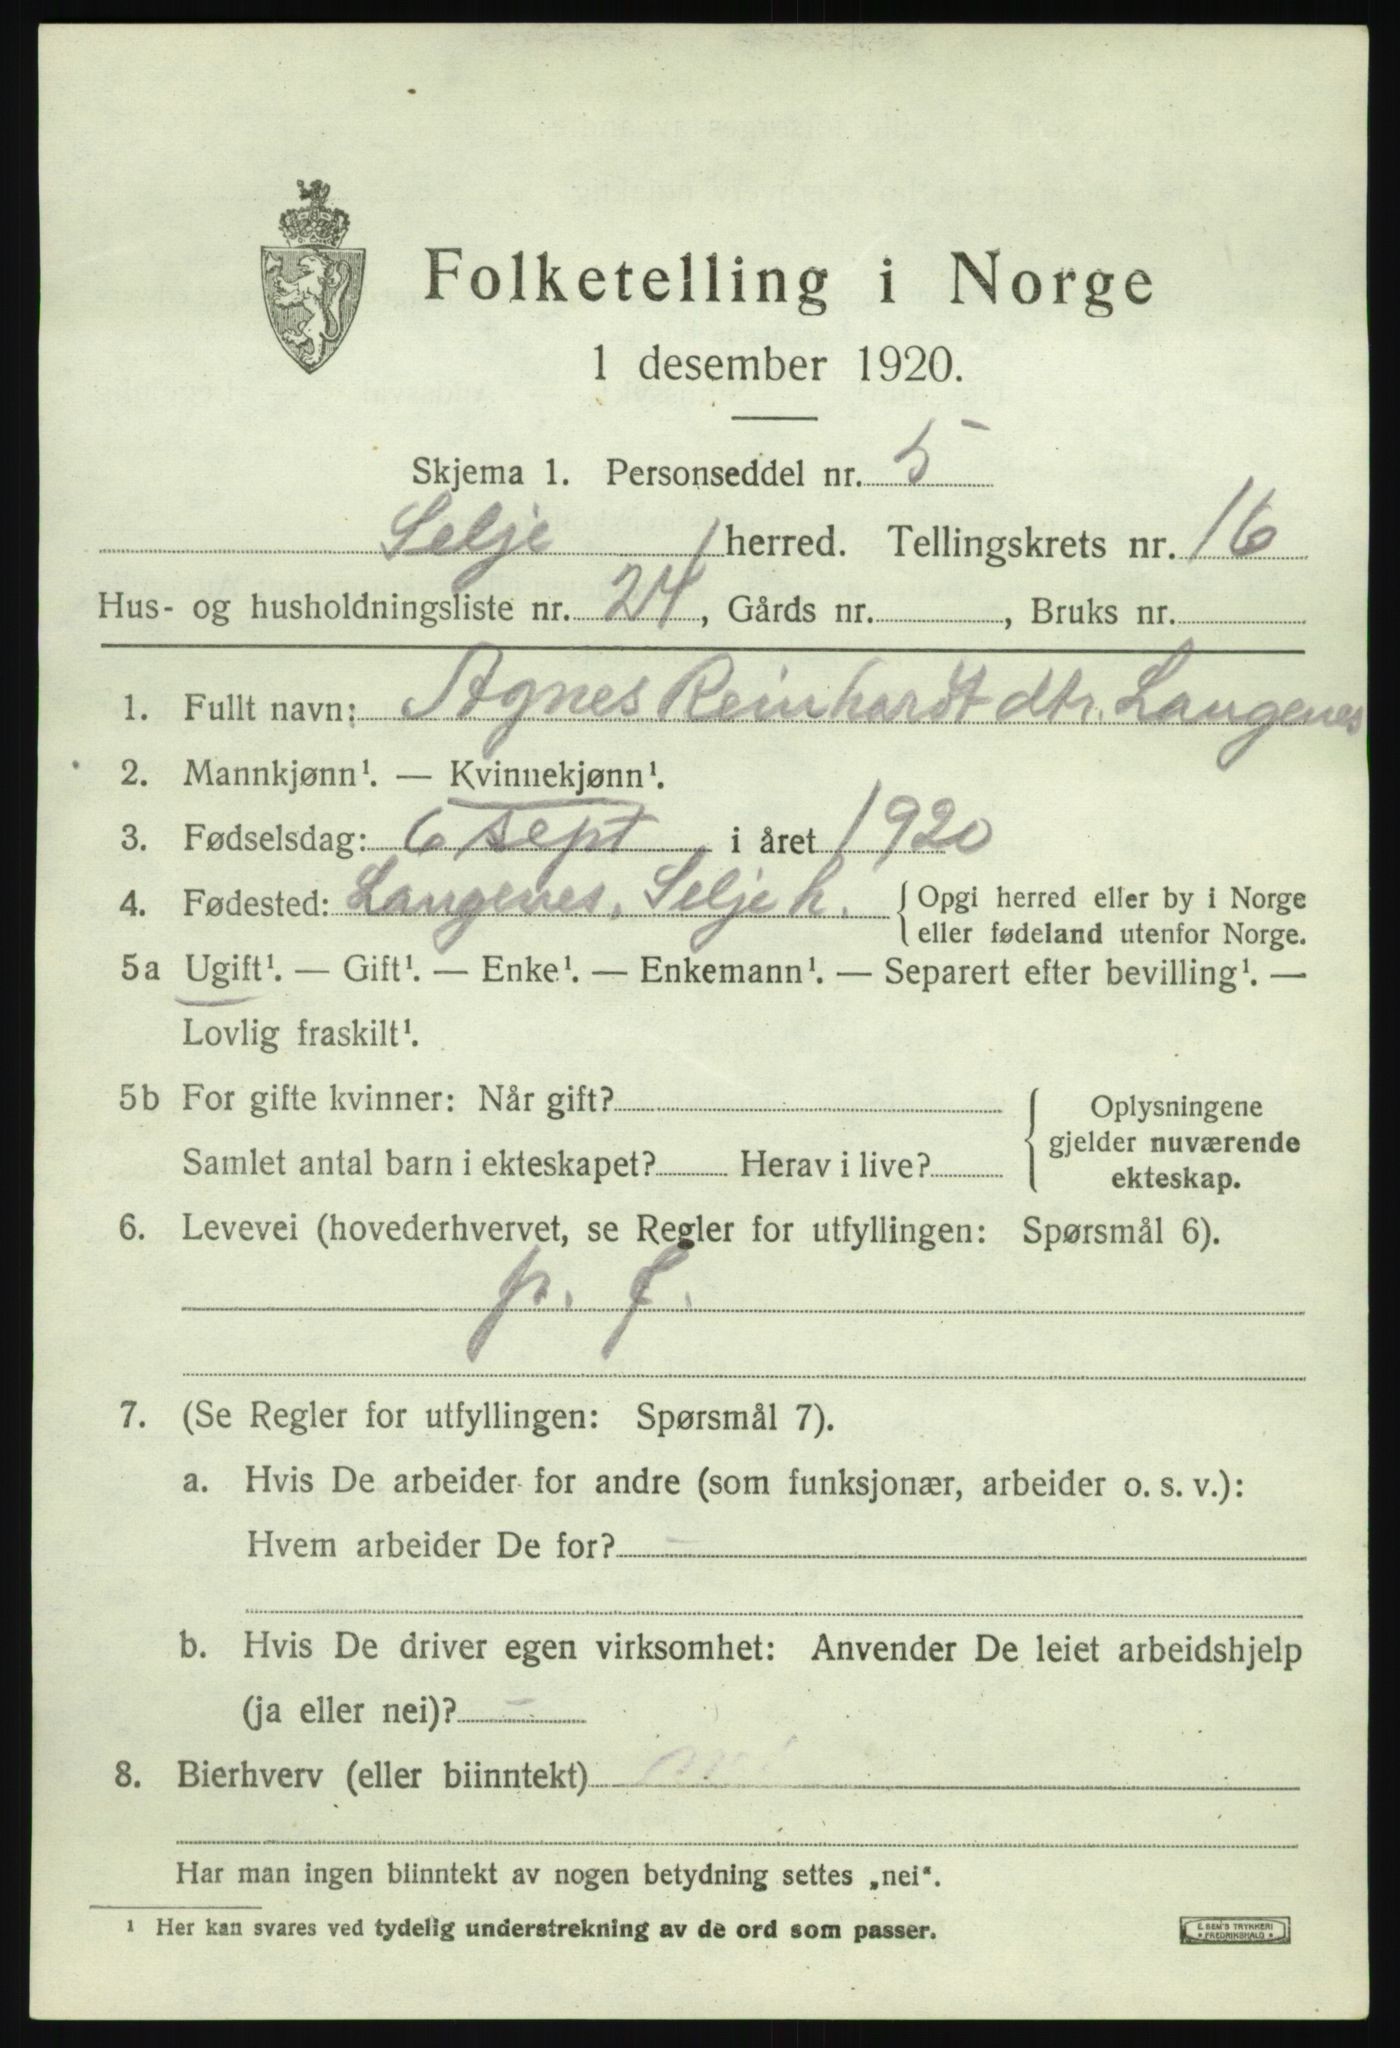 Folketelling i Norge
1 desember 1920.
Skjema 1. Personseddel nr. 5
Selje herred. Tellingskrets nr. 16
Hus- og husholdningsliste nr. 24, Gårds nr. , Bruks nr.
1. Fullt navn: Agnes Reinhardt dtr. Langenes
2. Mannkjønn¹. — Kvinnekjønn¹.
3. Fødselsdag: 6 sept i året 1920
4. Fødested: Langenes, Selje h. { Opgi herred eller by i Norge
eller fødeland utenfor Norge.
5a Ugift¹. — Gift¹. — Enke¹. — Enkemann¹. — Separert efter bevilling¹. —
Lovlig fraskilt¹.
5b For gifte kvinner: Når gift?
Samlet antal barn i ekteskapet? Herav i live?
{ Oplysningene
gjelder nuværende
ekteskap.
6. Levevei (hovederhvervet, se Regler for utfyllingen: Spørsmål 6).
p. f.
7. (Se Regler for utfyllingen: Spørsmål 7).
a. Hvis De arbeider for andre (som funksjonær, arbeider o. s. v.):
Hvem arbeider De for? –
b. Hvis De driver egen virksomhet: Anvender De leiet arbeidshjelp
(ja eller nei)? –
8. Bierhverv (eller biinntekt) nei
Har man ingen biinntekt av nogen betydning settes „nei“.
¹ Her kan svares ved tydelig understrekning av de ord som passer.
E. SEM'S TRYKKERI
* FREDRIKSHALD *